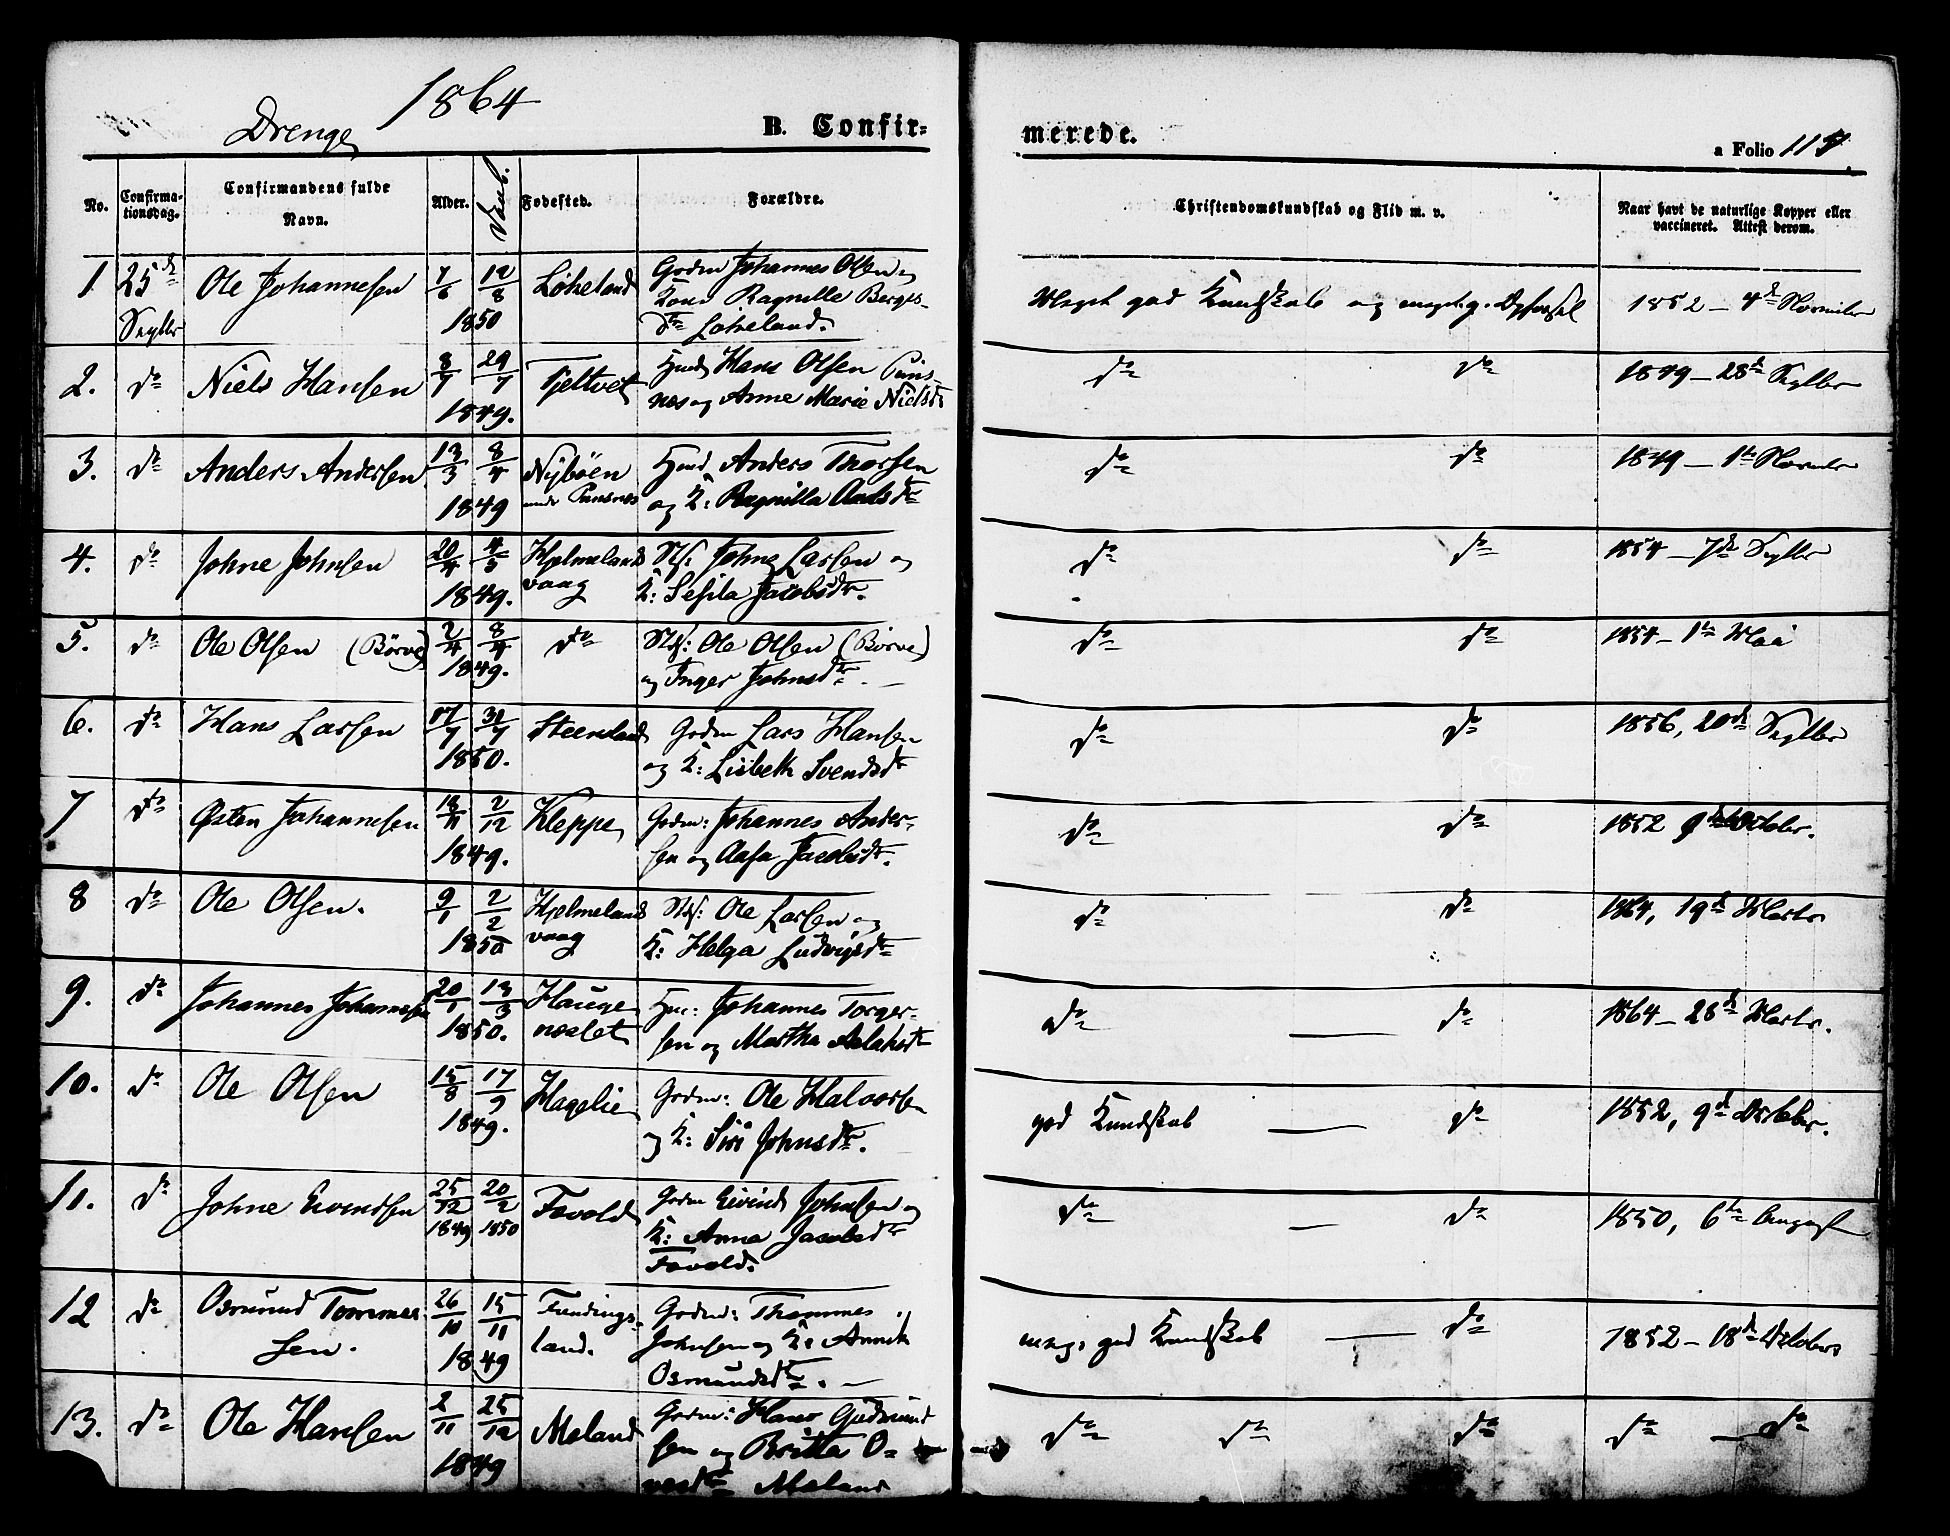 1864
Drenge
B. Confir-
merede.
a Folio
No.
Confirma-
tionsdag.
Confirmandens fulde
Navn.
Alder.
Daab.
Fødested.
Forældre.
Christendomskundskab og Flid m. v.
Naar havt de naturlige Kopper eller
vaccineret. Attest derom.
1 25de Ole Johannesen 7/6 12/8 Løkeland Grdm Johannes Olsen og
Septbr 1850 Kone Ragnille Berges-
dtr Løkeland.
Meget god Kundskab og meget g. Opførsel 1852 – 4de Novmbr
2. do Niels Hansen 8/7 29/7 Tjeltvet Hmd Hans Olsen Puns-
1849. nes og Anne Marie Nielsdr
do do 1849 – 28de Septbr
3. do Anders Andersen 12/3 8/4 Nybøen Hmd Anders Thorsen
1849 under Punsnes og K: Ragnilla Amdsdtr
do do 1849 – 1te Novmbr
4. do Johne Johnsen 20/4 4/5 Hjelmelands Stdf. Johne Larsen og
1849. vaag K: Sesila Jacobsdtr.
do do 1854 – 7de Septbr
5. do Ole Olsen (Børve) 2/4 8/4 do Stdf: Ole Olsen (Børve)
1849. og Inger Johnsdtr. –
do do 1854 – 1te Mai
6. do Hans Larsen 17/7 31/7 Steensland Grdm Lars Hansen
1850. og K: Lisbeth Svendsdtr
do do 1856, 20de Septbr
7 do Østen Johannesen 18/11 2/12 Kleppe Grdm: Johannes Ander-
1849. sen og Aasa Jacobsdtr.
do do 1852 9de Octobr.
8 do Ole Olsen. 9/1 2/2 Hjelmelands Stdf: Ole Larsen og
1850 vaag K: Helga Ludvigsdtr
do do 1864, 19de Marts
9. do Johannes Johannesen 20/1 13/3 Hauge Hmd: Johannes Torger-
1850. noslet sen og Martha Aslaksdtr
do — do 1864 – 28de Marts.
10. do Ole Olsen 15/8 17/9 Hagelie Grdm: Ole Halvorsen
1849. og K: Siri Johnsdtr.
god Kundskab — do 1852, 9de Octobr.
11. do Johne Eivendsen 25/12 20/2 Fevold Grdm Eivind Johnsen og
1849 1850 K: Anna Jacobsdtr
Fevold.
do — do 1850, 6te August
12 do Osmund Tommes- 26/10 15/11 Fundings- Grdm: Thommes
sen. 1849 land. Johnsen og K: Annik
Osmundsdtr. –
meg. god Kundskab — do 1852 – 18de Octobers
13. do Ole Hansen 2/11 25/12 Meland Grdm: Hans Gudmund
1849 sen og Britta O-
versdtr Meland
do do do do — do